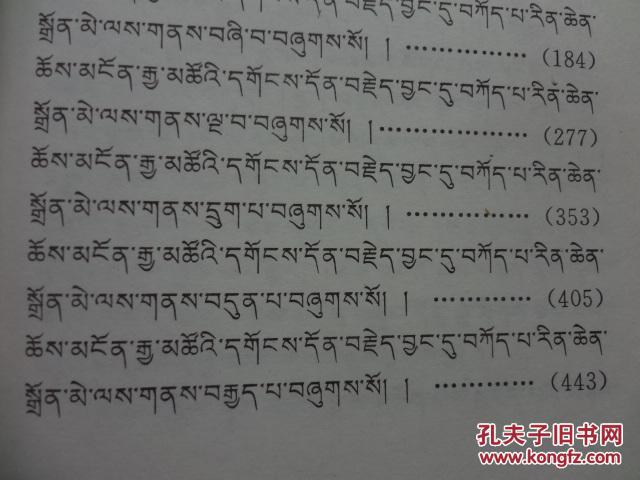 དགོངས་དོན་བརྗེད་བྱང་དུ་བཀོད་པ་རིན་ཆེན་
སྒྲོན་མེ་ལས་གནས་བཞི་བ་བཞུགས་སོ། ། ·············· (184)
ཆོས་མངོན་རྒྱ་མཚོའི་དགོངས་དོན་བརྗེད་བྱང་དུ་བཀོད་པ་རིན་ཆེན་
སྒྲོན་མེ་ལས་གནས་ལྔ་བ་བཞུགས་སོ། ། ················· (277)
ཆོས་མངོན་རྒྱ་མཚོའི་དགོངས་དོན་བརྗེད་བྱང་དུ་བཀོད་པ་རིན་ཆེན་
སྒྲོན་མེ་ལས་གནས་དྲུག་པ་བཞུགས་སོ། ། ·············· (353)
ཆོས་མངོན་རྒྱ་མཚོའི་དགོངས་དོན་བརྗེད་བྱང་དུ་བཀོད་པ་རིན་ཆེན་
སྒྲོན་མེ་ལས་གནས་བདུན་པ་བཞུགས་སོ། ། ··········· (405)
ཆོས་མངོན་རྒྱ་མཚོའི་དགོངས་དོན་བརྗེད་བྱང་དུ་བཀོད་པ་རིན་ཆེན་
སྒྲོན་མེ་ལས་གནས་བརྒྱད་པ་བཞུགས་སོ། ། ············ (443)
孔夫子旧书网
www.kongfz.com